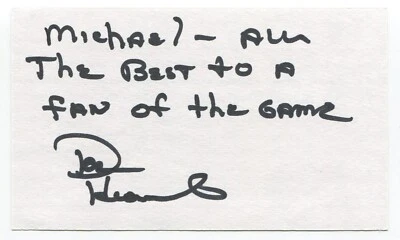 Michael - All
The Best to a
fan of the Game